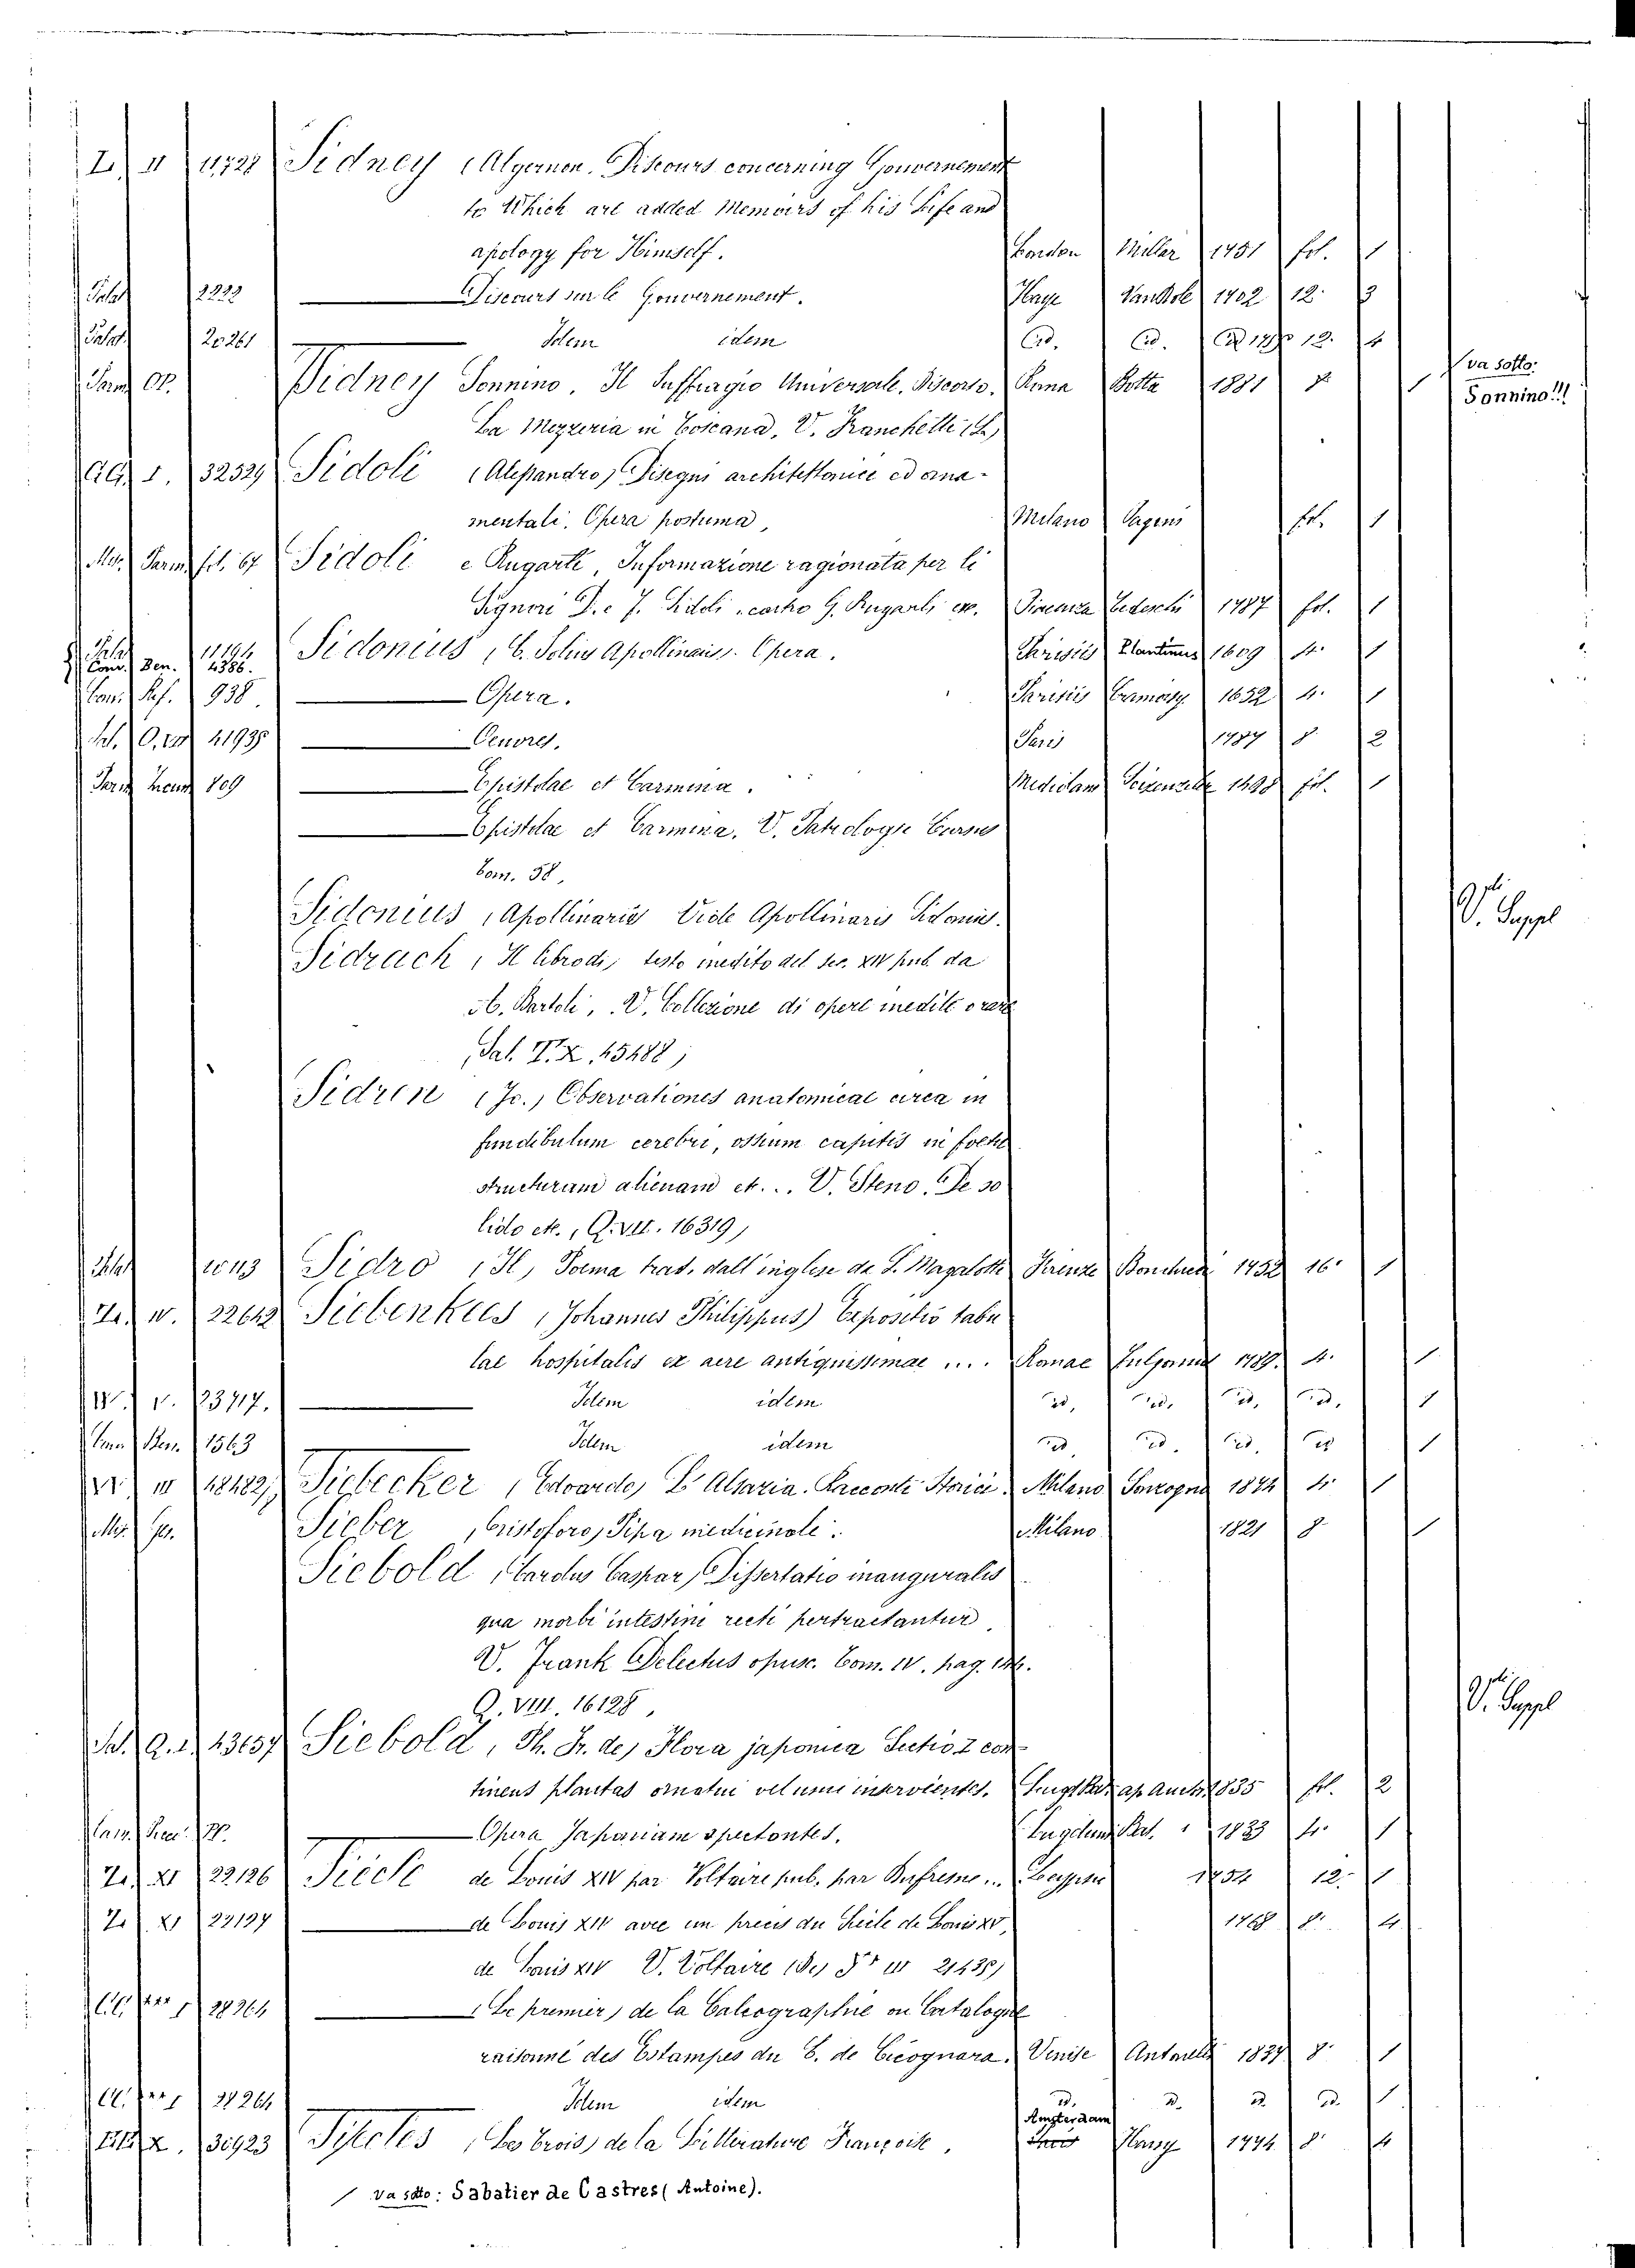 Z. II 11728 Sidney (Algernon. Discours concerning Gouvernement
to Which are added Memoirs of his Life and
apology for Himself. London Miller 1751 fol. 1
Palat 2222 Discours sur le Gouvernement. Haye Van Dole 1702 12. 3
Palat 20261 Idem idem id. id. 12. 4
Parm Op. Sidney Sonnino. Il Suffragio Universale. Discorso. Roma Botta 1881 8 1
va sotto: Sonnino!!!
La Mezzeria in Toscana, V. Franchetti (L.)
AG. I. 32529 Sidoli (Alessandro) Disegni architettonici ed orna-
mentali. Opera postuma, Milano Pagani fol. 1
Mss. Parm. fol. 67 Sidoli e Rugarli, Informazione ragionata per li
Signori D. e J. Sidoli contro G. Rugarli Piacenza Tedeschi 1787 fol. 1
Palat 11194 Sidonius, C. Solius Apollinaris. Opera. Parisiis Plantinus 1609 4. 1
Com. Ben. 4386.
Com. Ref. 938 Opera. Parisiis Cramoisy 1652 4. 1
41935 Oeuvres. Paris 1787 8 2
Parm 809 Epistolae et Carmina. Mediolani 1498 fol. 1
Epistolae et Carmina, V. Patrologie Cursus
Tom. 58,
Sidonius, Apollinaris Vide Apollinaris Sidonius.
V. Suppl
Sidrach, Il libro di, testo inedito del sec. XIV pub. da
A. Bartoli, V. Collezione di opere inedite o rare
Sal. T. X. 45488)
Sidren (Jo.) Observationes anatomicae circa in
fundibulum cerebri, ossium capitis in foetu
structuram alienam et... V. Steno. De so
lido etc., Q. VII. 16319)
Palat 10113 Sidro (Il) Poema trad. dall'inglese da L. Magalotti Firenze Bonducci 1752 16. 1
Zz. IV. 22642 Siebenkees (Johannes Philippus) Expositio tabu
lae hospitalis ex aere antiquissimae .... Romae Fulgonus 1789. 4. 1
V. 23717. Idem idem id. id. id. id. 1
Com. Ben. 1563 Idem idem id. id. id. id. 1
III 18482 Siebecker (Edoardo) L'Alsazia. Racconti Storici. Milano Sonzogno 1874 4. 1
Mss. Sieber (Cristoforo) Pipa medicinale. Milano 1821 8 1
Siebold (Carolus Caspar) Dissertatio inauguralis
qua morbi intestini recti pertractantur,
V. Frank Delectus opusc. Tom. IV. pag.
Q. VIII. 16128,
V. Suppl
43657 Siebold, Ph. Fr. de) Flora japonica Sectio I con
tinens plantas ornatui vel usui inservientes. Lugd. Bat. ap. Auct. 1835 fol. 2
Opera Japoniam spectantes. Lugduni Bat. 1833 4. 1
Zz. XI 22126 Siecle de Louis XIV par Voltaire pub. par Dufresne... Leipzig 1754 12. 1
Zz. XI 22127 de Louis XIV avec un precis du Siecle de Louis XV, 1768 8. 4
de Louis XIV V. Voltaire (De) 21438)
28264 (Le premier) de la Calcographie ou Catalogue
raisonné des Estampes du C. de Cicognara. Venise Antonelli 1837 8. 1
28264 Idem idem id. id. id. id. 1
X. 30923 Siecles (Les trois) de la Litterature Françoise, Amsterdam 1774 8. 4
va sotto: Sabatier de Castres (Antoine).